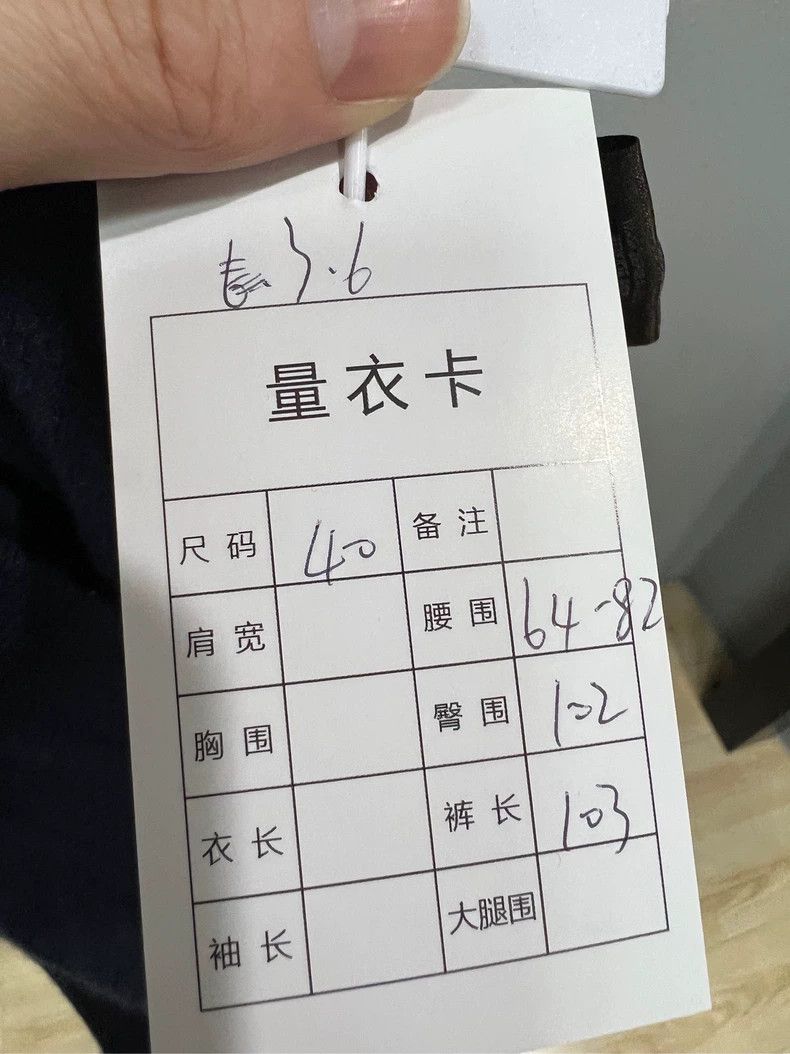 3.6
量衣卡
尺码 40 备注
肩宽 腰围 64-82
胸围 臀围 102
衣长 裤长 103
袖长 大腿围